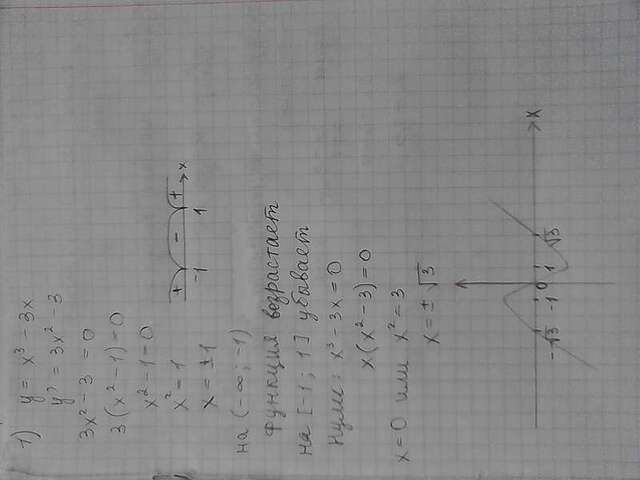 1) y = x³ - 3x
y' = 3x² - 3
3x² - 3 = 0
3(x² - 1) = 0
x² - 1 = 0
x² = 1
x = ±1
+ - + x
-1 1
на (-∞; -1)
функция возрастает
на [-1; 1] убывает
Нули: x³ - 3x = 0
x(x² - 3) = 0
x = 0 или x² = 3
x = ±√3
-√3 -1 0 1 √3 x